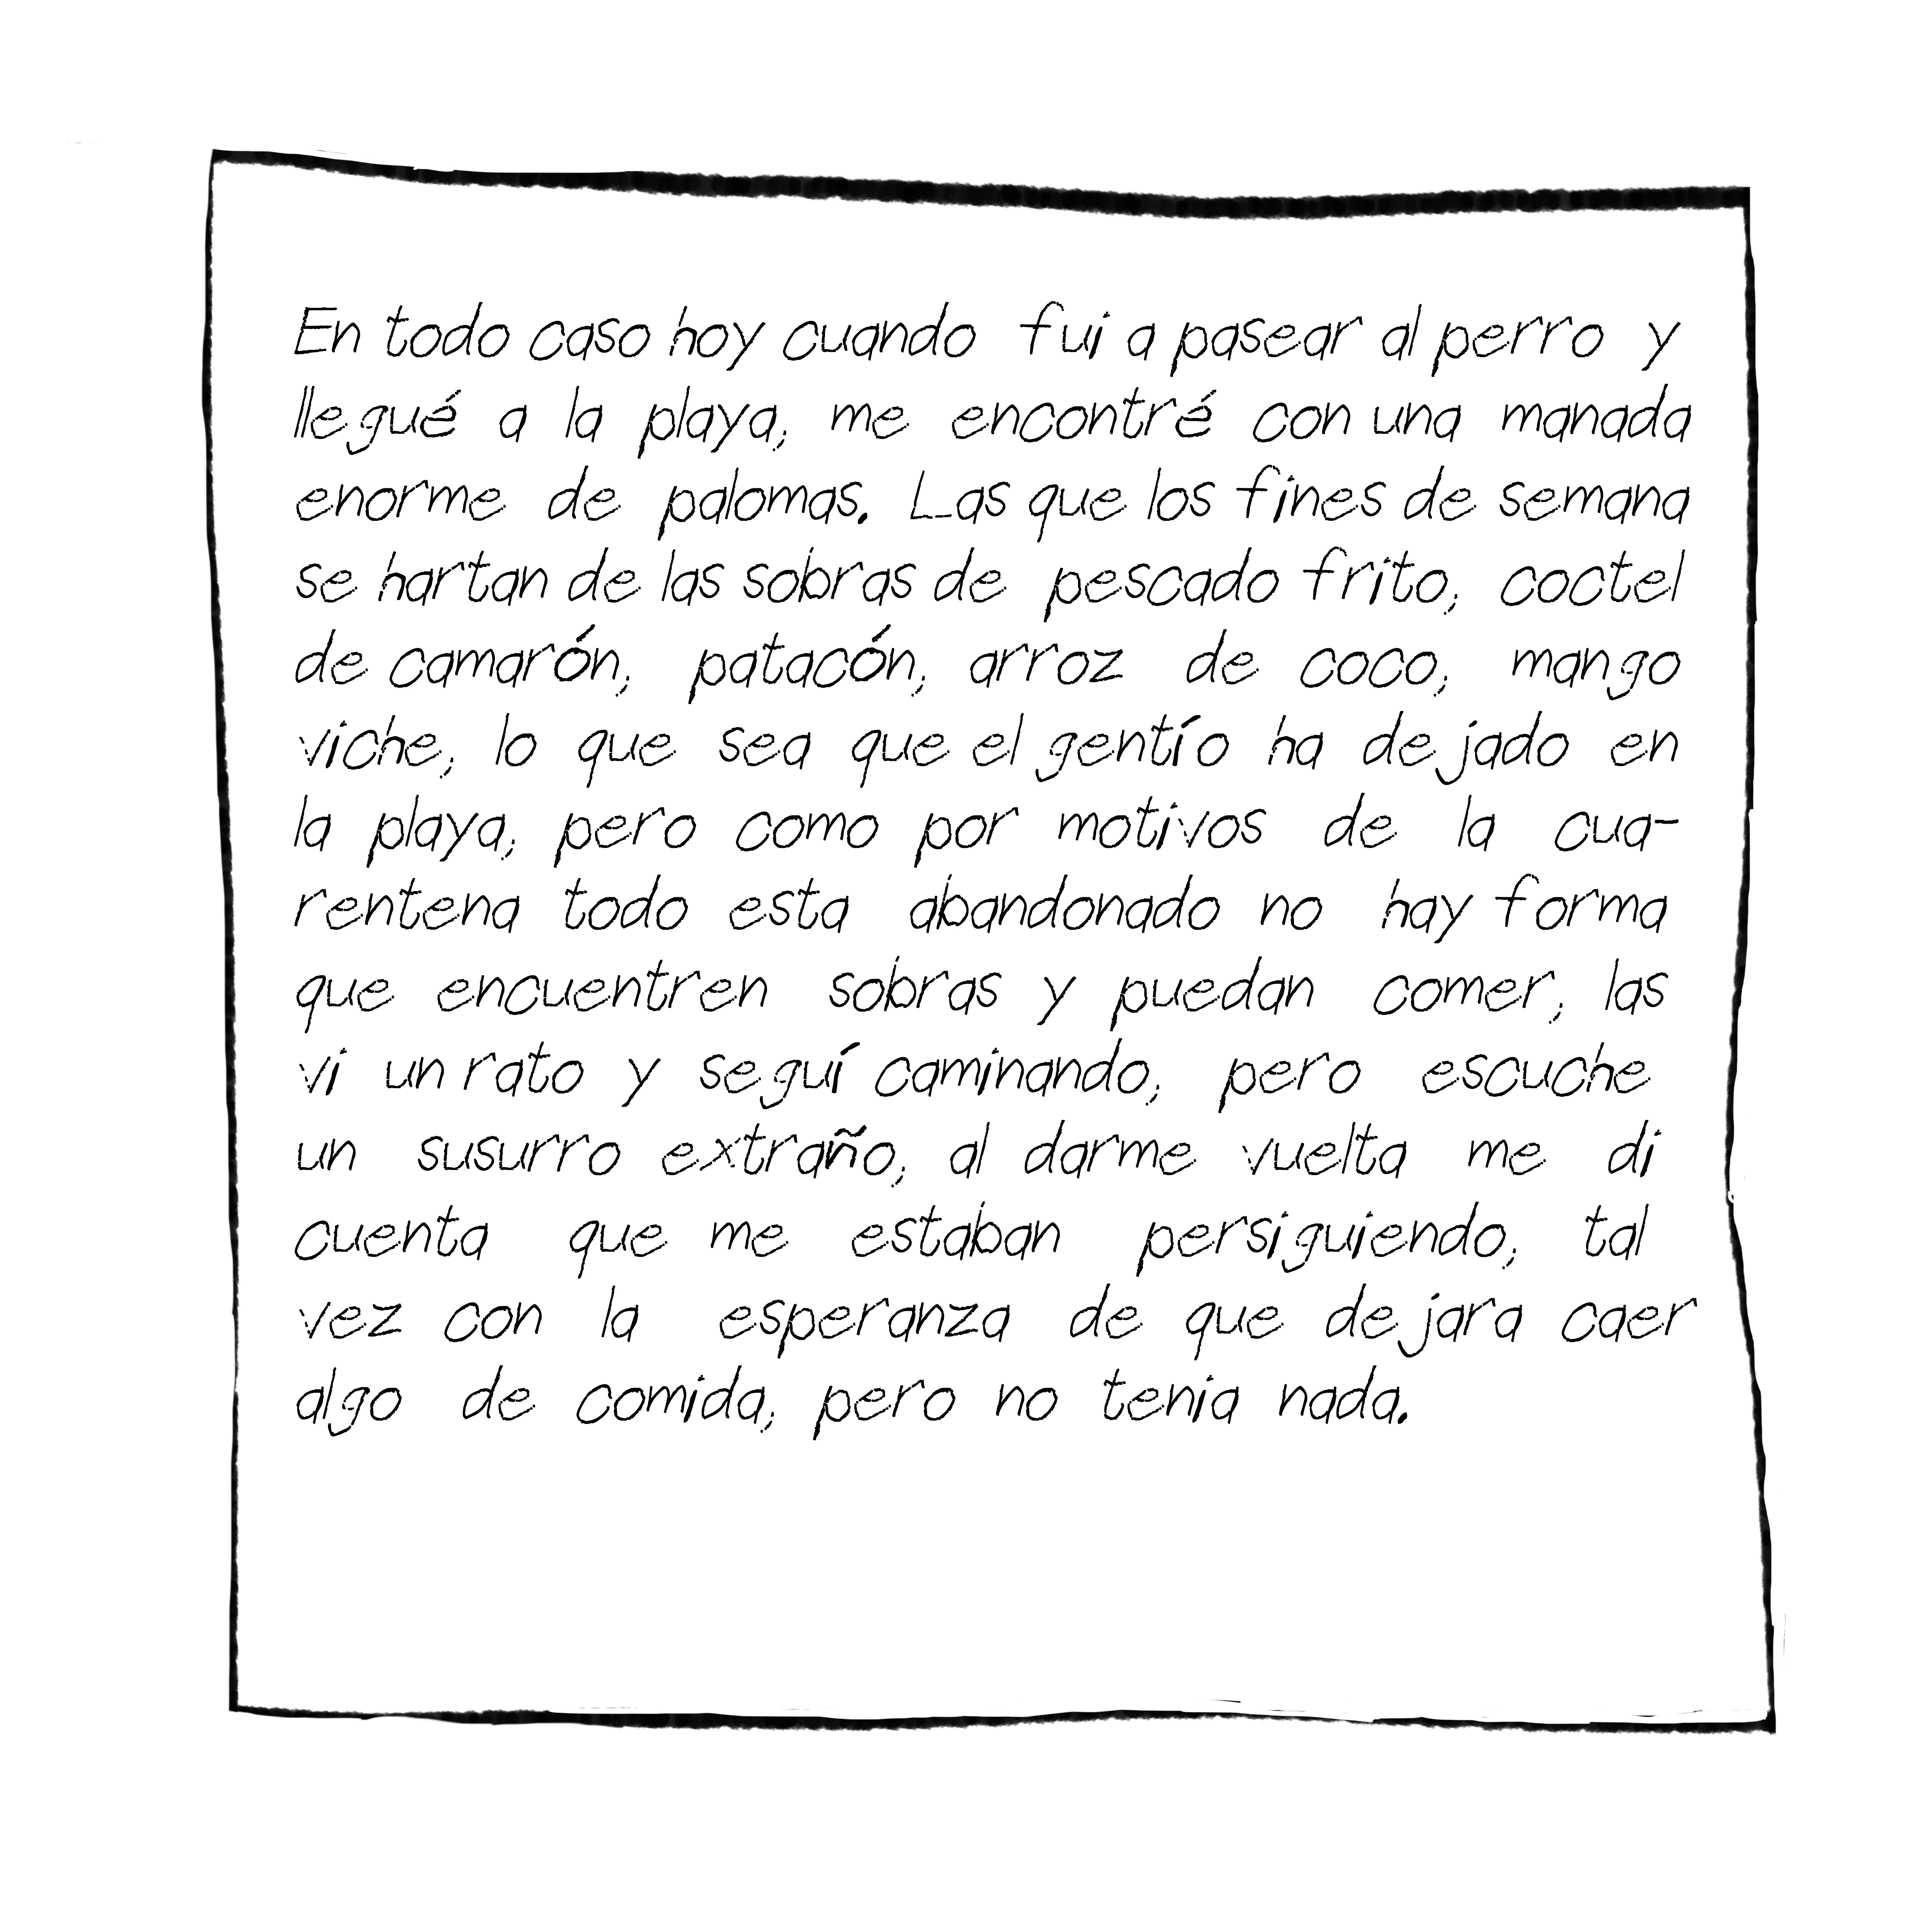 En todo caso hoy cuando fui a pasear al perro y
llegué a la playa, me encontré con una manada
enorme de palomas. Las que los fines de semana
se hartan de las sobras de pescado frito, coctel
de camarón, patacón, arroz de coco, mango
viche, lo que sea que el gentío ha dejado en
la playa, pero como por motivos de la cua-
rentena todo esta abandonado no hay forma
que encuentren sobras y puedan comer, las
vi un rato y seguí caminando, pero escuche
un susurro extraño, al darme vuelta me di
cuenta que me estaban persiguiendo, tal
vez con la esperanza de que dejara caer
algo de comida, pero no tenia nada.